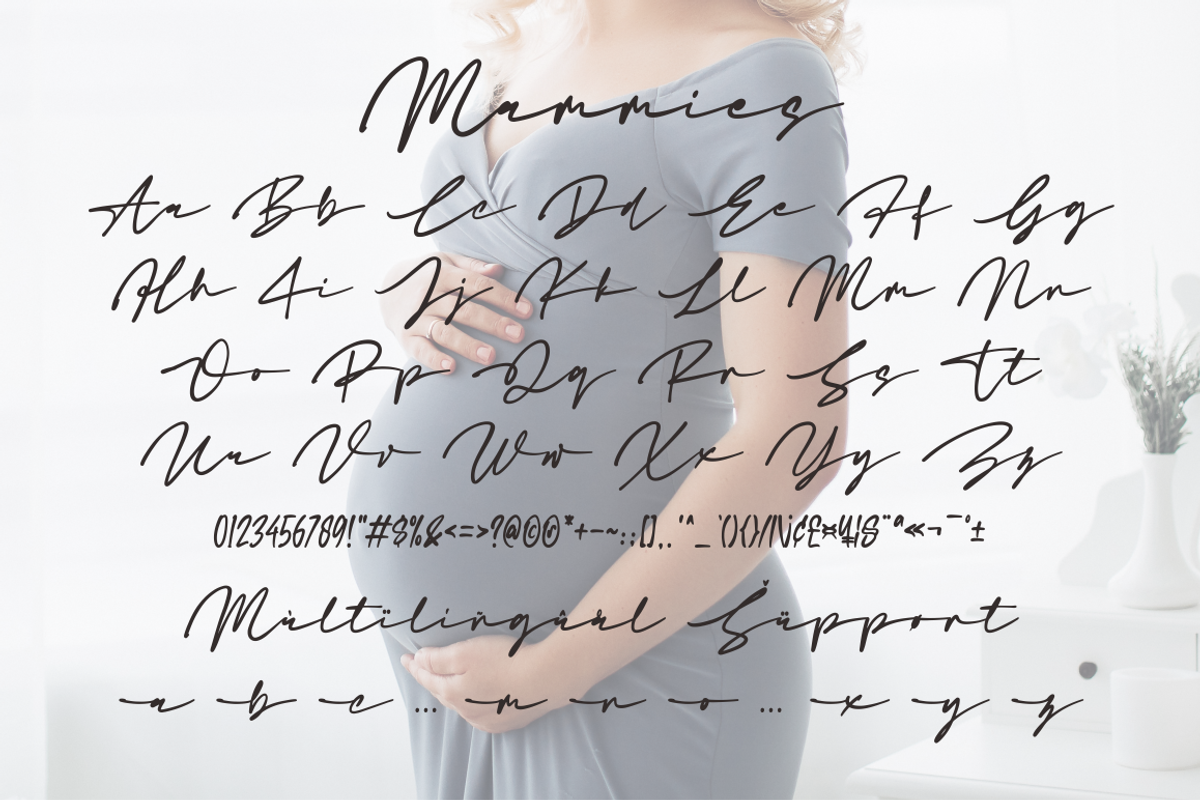 Mammies
Aa Bb Cc Dd Ee Ff Gg
Hh Ii Jj Kk Ll Mm Nn
Oo Pp Qq Rr Ss Tt
Uu Vv Ww Xx Yy Zz
0123456789!"#$%&<=>?@©®*+-~:;[],.'^_`(){}/|\¡¢£¤¥¦§¨ª«¬¯°±
Mùltïlíñgûål Šüppört
a b c ... m n o ... x y z